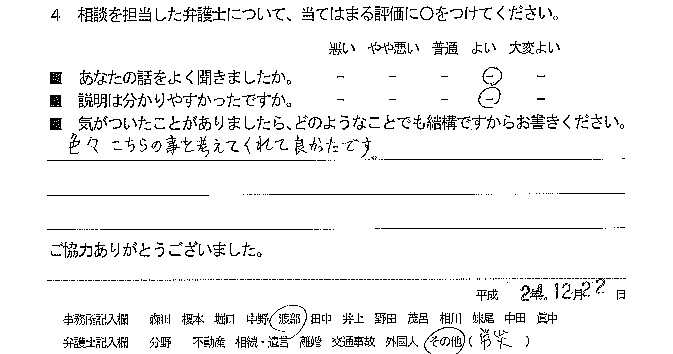 4 相談を担当した弁護士について、当てはまる評価に○をつけてください。
悪い やや悪い 普通 よい 大変よい
■ あなたの話をよく聞きましたか。 － － － － －
■ 説明は分かりやすかったですか。 － － － － －
■ 気がついたことがありましたら、どのようなことでも結構ですからお書きください。
色々こちらの事を考えてくれて良かたです。
ご協力ありがとうございました。
平成 24年 12月 22日
事務所記入欄 森川 榎本 堀口 中野 渡部 田中 井上 野田 茂呂 相川 妹尾 中田 眞中
弁護士記入欄 分野 不動産 相続・遺言 離婚 交通事故 外国人 その他 ( 労災 )